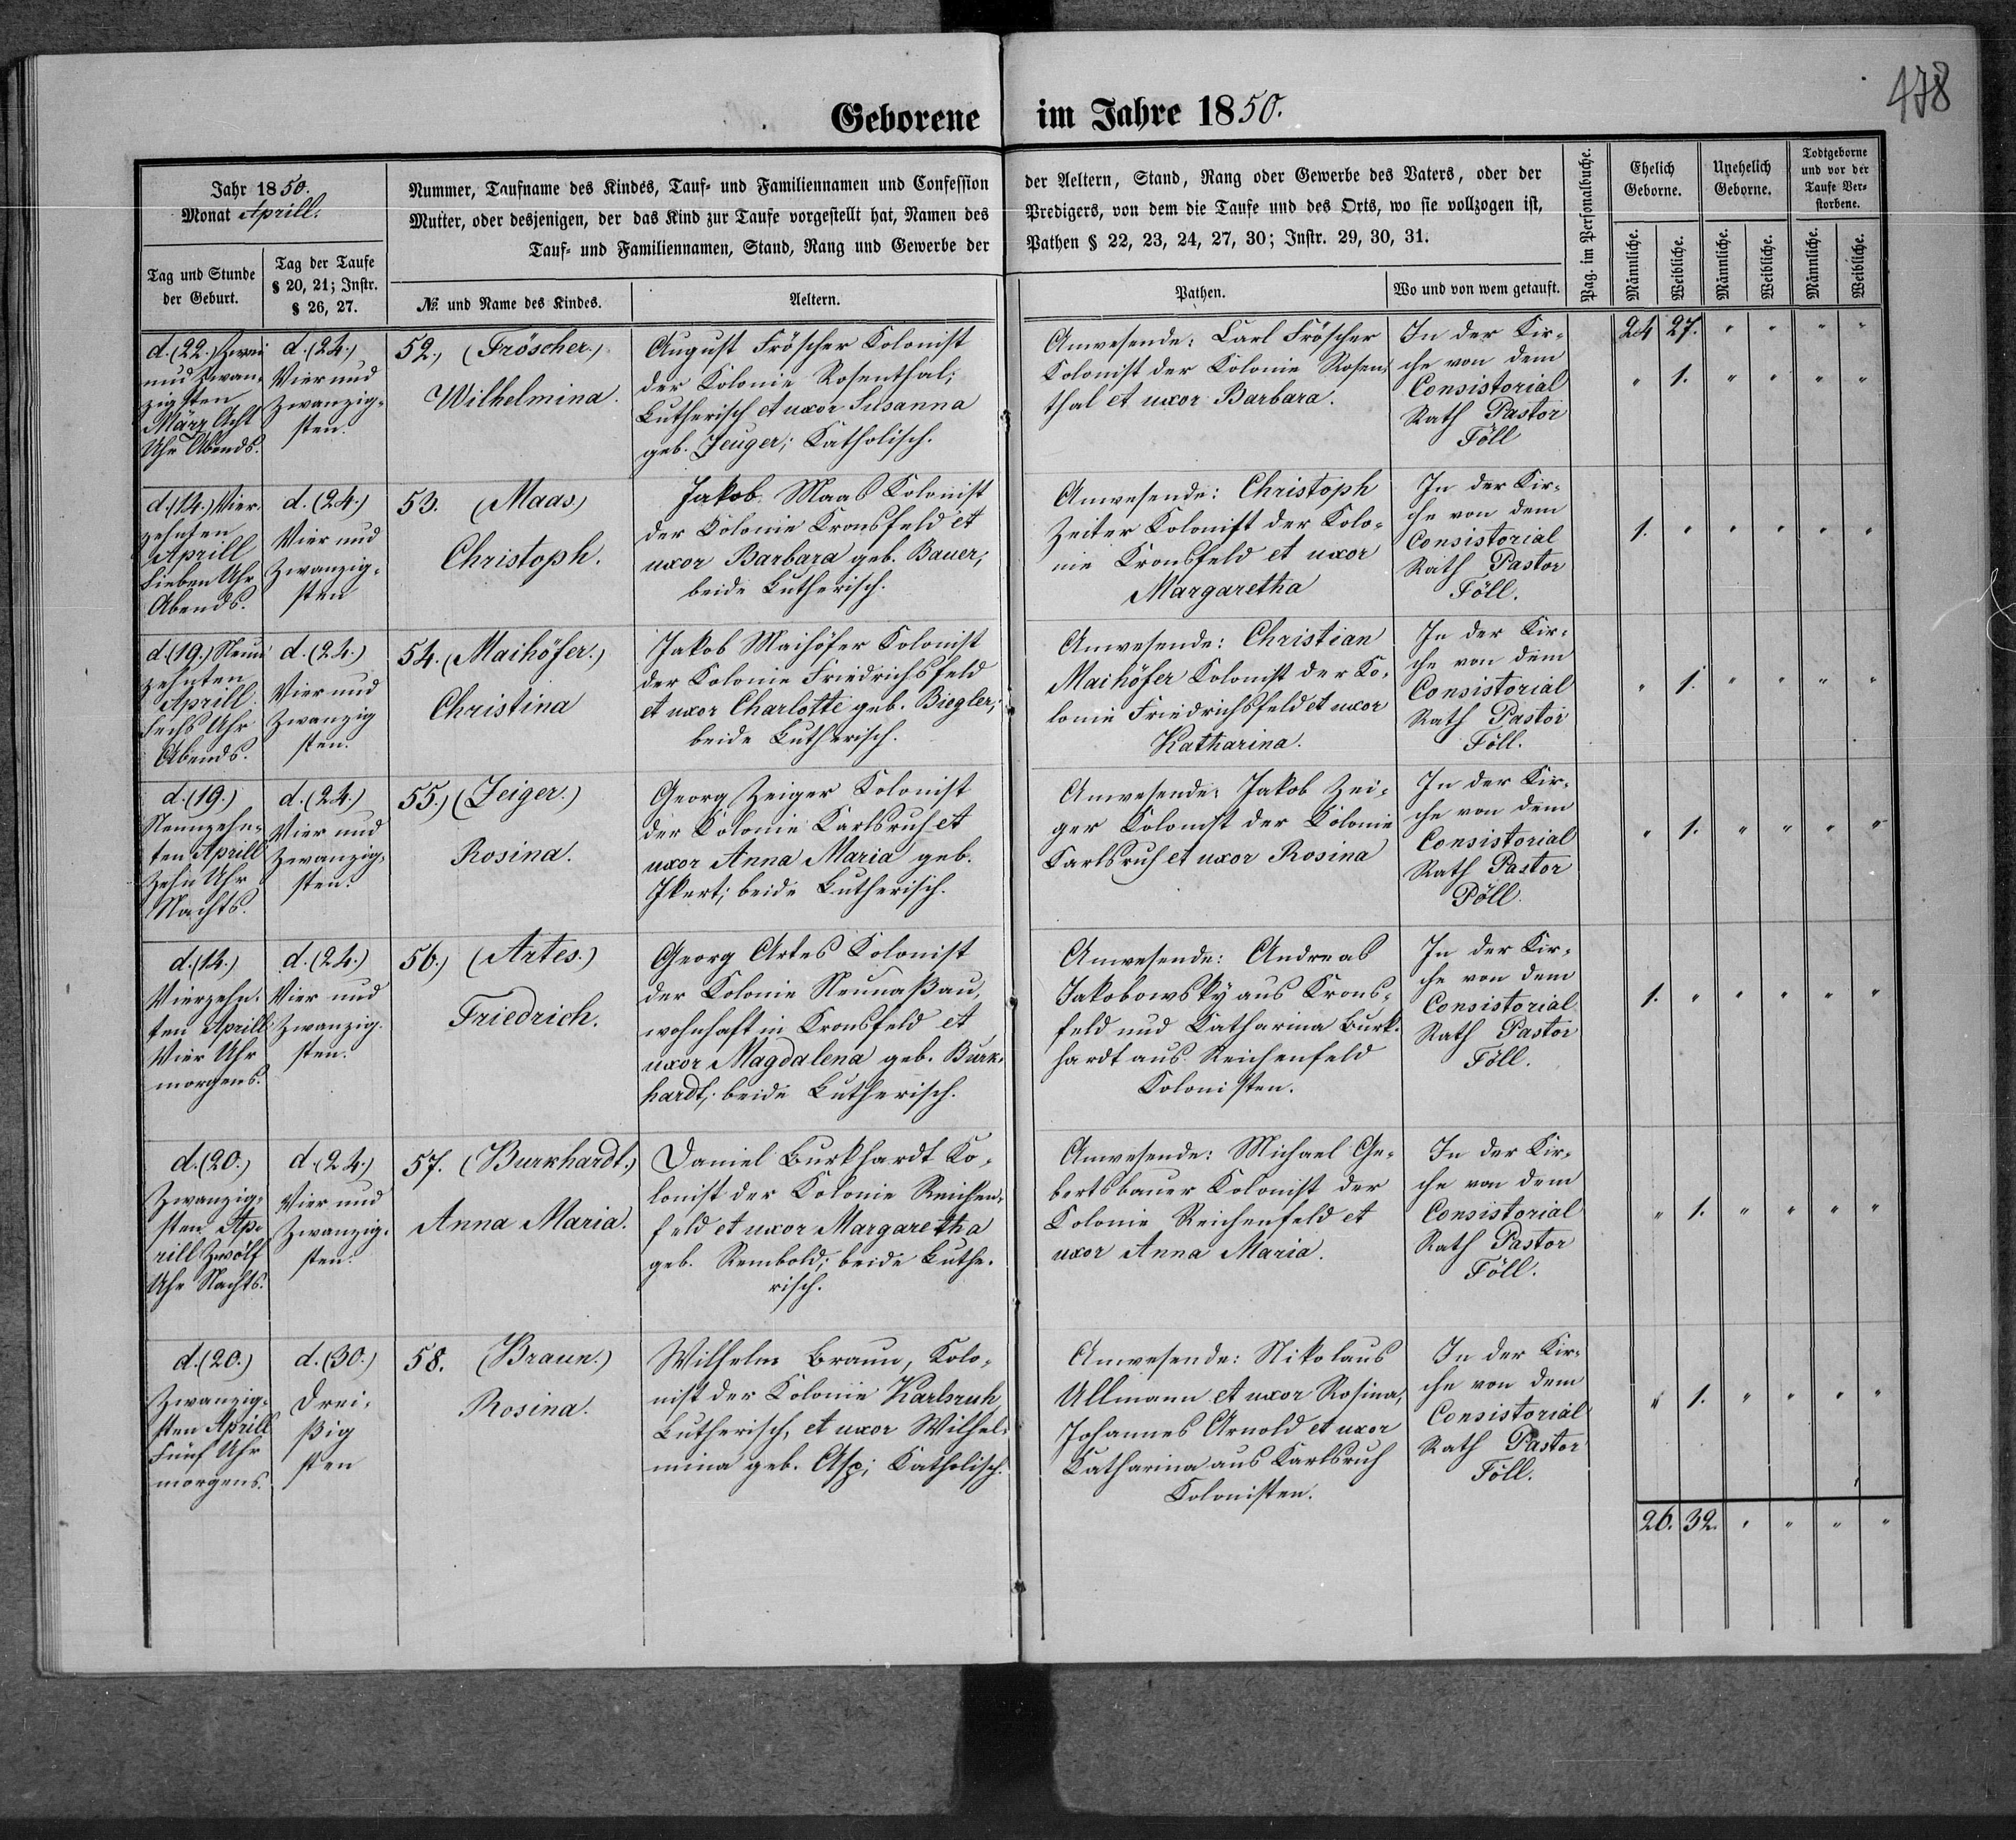 478
Geborene im Jahre 1850.
Jahr 1850.
Monat Aprill.
Tag und Stunde
der Geburt.
Tag der Taufe
§ 20, 21; Instr.
§ 26, 27.
Nummer, Taufname des Kindes, Tauf- und Familiennamen und Confession
der Aeltern, Stand, Rang oder Gewerbe des Vaters, oder der
Mutter, oder desjenigen, der das Kind zur Taufe vorgestellt hat, Namen des
Predigers, von dem die Taufe und des Orts, wo sie vollzogen ist,
Tauf- und Familiennamen, Stand, Rang und Gewerbe der
Pathen § 22, 23, 24, 27, 30; Instr. 29, 30, 31.
№ und Name des Kindes.
Aeltern.
Pathen.
Wo und von wem getauft.
Pag. im Personalbuche.
Ehelich
Geborne.
Unehelich
Geborne.
Todtgeborne
und vor der
Taufe Ver-
storbene.
Männliche.
Weibliche.
Männliche.
Weibliche.
Männliche.
Weibliche.
24 27. " " " "
d. (22.) Zwei
und Zwan-
zigsten
März Acht
Uhr Abends.
d. (24.)
Vier und
Zwanzig-
sten.
52.) (Fröscher.)
Wilhelmina.
August Fröscher Kolonist
der Kolonie Rosenthal;
Lutherisch et uxor Susanna
geb. Zeuger; Katholisch.
Anwesende: Carl Fröscher
Kolonist der Kolonie Rosen-
thal et uxor Barbara.
In der Kir-
che von dem
Consistorial
Rath Pastor
Föll
" 1. " " " "
d. (14.) Vier-
zehnten
Aprill
Sieben Uhr
Abends.
d. (24.)
Vier und
Zwanzig-
sten
53. (Maas)
Christoph.
Jakob Maas Kolonist
der Kolonie Kronsfeld et
uxor Barbara geb. Bauer;
beide Lutherisch.
Anwesende: Christoph
Zeiter Kolonist der Kolo-
nie Kronsfeld et uxor
Margaretha
In der Kir-
che von dem
Consistorial
Rath Pastor
Föll.
1. " " " " "
d. (19.) Neun
zehnten
Aprill
Sechs Uhr
Abends.
d. (24.)
Vier und
Zwanzig
sten.
54. (Maihöfer.)
Christina
Jakob Maihöfer Kolonist
der Kolonie Friedrichsfeld
et uxor Charlotte geb. Biegler;
beide Lutherisch.
Anwesende: Christian
Maihöfer Kolonist der Ko-
lonie Friedrichsfeld et uxor
Katharina.
In der Kir-
che von dem
Consistorial
Rath Pastor
Föll.
" 1. " " " "
d. (19.)
Neunzehn-
ten Aprill
Zehn Uhr
Nachts.
d. (24.)
Vier und
Zwanzig-
sten.
55.) (Zeiger.)
Rosina.
Georg Zeiger Kolonist
der Kolonie Karlsruh et
uxor Anna Maria geb.
Ikert; beide Lutherisch.
Anwesende: Jakob Zei-
ger Kolonist der Kolonie
Karlsruh et uxor Rosina
In der Kir-
che von dem
Consistorial
Rath Pastor
Föll.
" 1. " " " "
d. (14.)
Vierzehn-
ten Aprill
Vier Uhr
morgens.
d. (24.)
Vier und
Zwanzig-
sten.
56.) (Artes.)
Friedrich.
Georg Artes Kolonist
der Kolonie Neunaßau,
wohnhaft in Kronsfeld et
uxor Magdalena geb. Burk-
hardt; beide Lutherisch.
Anwesende: Andreas
Jakobowsky aus Krons-
feld und Katharina Burk-
hardt aus Reichenfeld
Kolonisten.
In der Kir-
che von dem
Consistorial
Rath Pastor
Föll.
1. " " " " "
d. (20.)
Zwanzig-
sten Ap-
rill Zwölf
Uhr Nachts.
d. (24.)
Vier und
Zwanzig-
sten.
57. (Burkhardt.)
Anna Maria.
Daniel Burkhardt Ko-
lonist der Kolonie Reichen-
feld et uxor Margaretha
geb. Rembold; beide Luthe-
risch.
Anwesende: Michael Ge-
bertsbauer Kolonist der
Kolonie Reichenfeld et
uxor Anna Maria.
In der Kir-
che von dem
Consistorial
Rath Pastor
Föll.
" 1. " " " "
d. (20.)
Zwanzig-
sten Aprill
Fünf Uhr
morgens.
d. (30.)
Drei-
ßig
sten
58. (Braun.)
Rosina.
Wilhelm Braun, Kolo-
nist der Kolonie Karlsruh
Lutherisch, et uxor Wilhel-
mina geb. Asp; Katholisch.
Anwesende: Nikolaus
Ullmann et uxor Rosina,
Johannes Arnold et uxor
Katharina aus Karlsruh
Kolonisten.
In der Kir-
che von dem
Consistorial
Rath Pastor
Föll.
" 1. " " " "
26. 32. " " " "